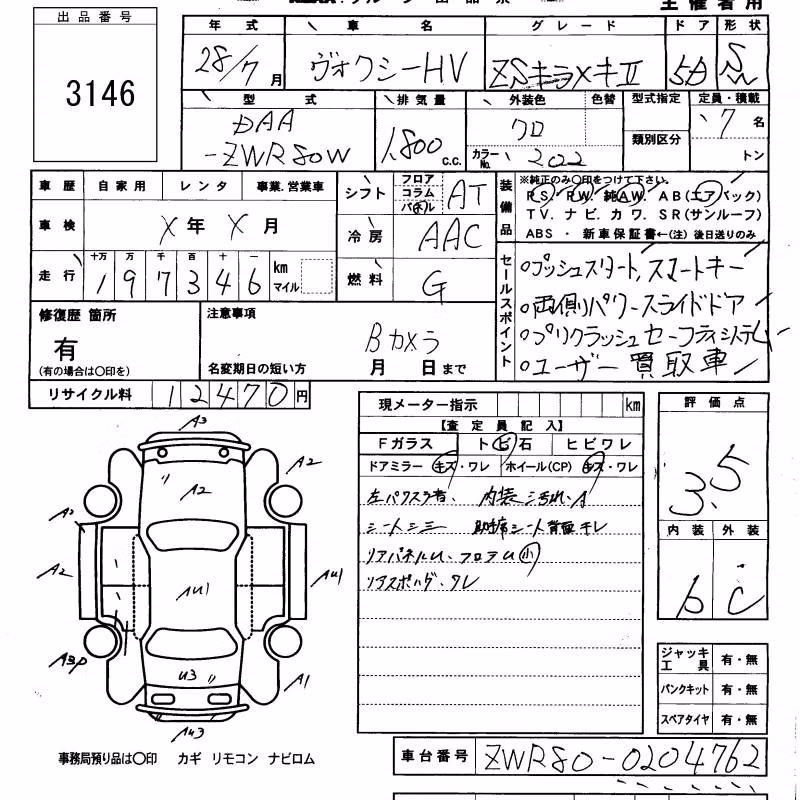 出品番号
3146
主催者用
年式 車名 グレード ドア 形状
28/7月 ヴォクシーHV ZSキラメキII 5D SW
型式 排気量 外装色 色替 型式指定 定員・積載
DAA クロ 類別区分 7名
-ZWR80W 1,800 c.c. カラーNo. 202 トン
車歴 自家用 レンタ 事業、営業車
車検 X年 X月
十万 万 千 百 十 一
走行 197346 km マイル
シフト フロア コラム パネル AT
冷房 AAC
燃料 G
装備品
※純正のみ○印をつけて下さい。
P S. P W. 純A W. A B (エアバック)
T V. ナ ビ. カ ワ. S R (サンルーフ)
ABS ・ 新車保証書←(注) 後日送りのみ
セールスポイント
○プッシュスタート,スマートキー
○両側パワースライドドア
○プリクラッシュセーフティシステム
○ユーザー買取車
修復歴 箇所
有
(有の場合は○印を)
注意事項
Bカメラ
名変期日の短い方 月 日まで
リサイクル料 12470円
現メーター指示 km
【査定員記入】
Fガラス トビ石 ヒビワレ
ドアミラー キズ・ワレ ホイール(CP) キズ・ワレ
シートシミ 助手席シート背面キレ
リアスポイラ ワレ
評価点
3.5
内装 外装
b C
ジャッキ工具 有・無
パンクキット 有・無
スペアタイヤ 有・無
A3
A2
A2
A2
A2
AU1
AU1
A3P
U3
A1
AU3
事務局預り品は○印 カギ リモコン ナビロム
車台番号 ZWR80-0204762